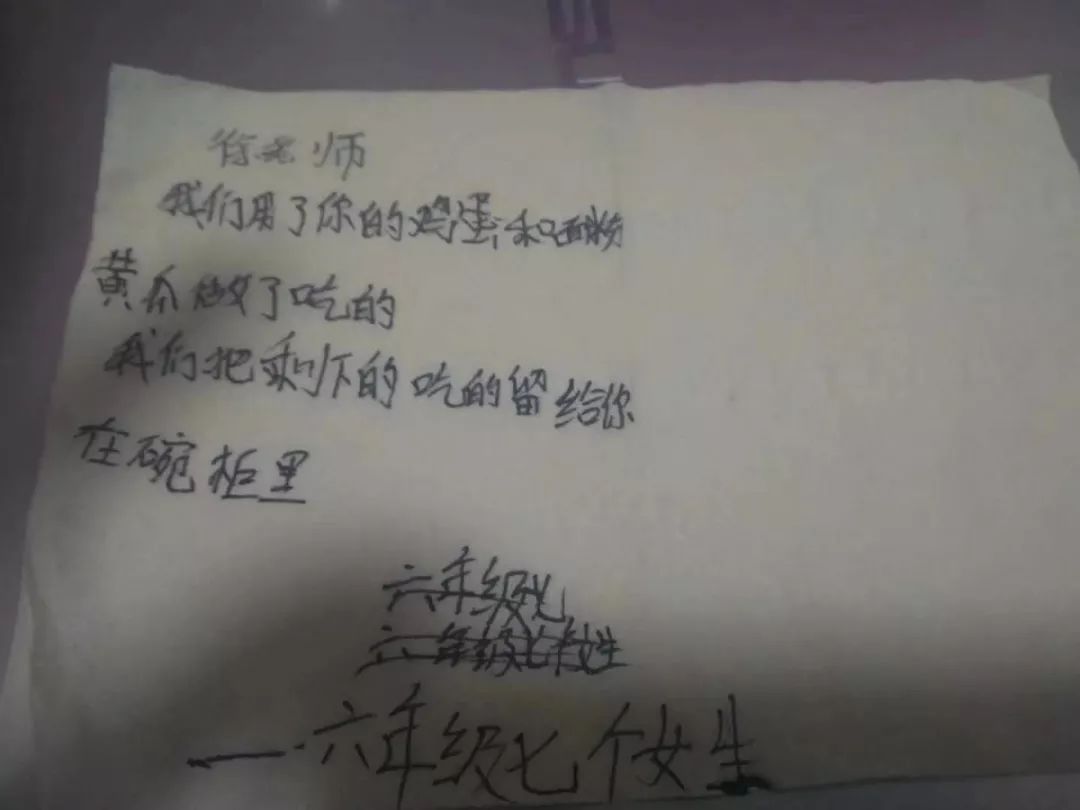 徐老师
我们用了你的鸡蛋和面粉
黄瓜做了吃的
我们把剩下的吃的留给你
在碗柜里
六年级七
六年级七个女生
——六年级七个女生